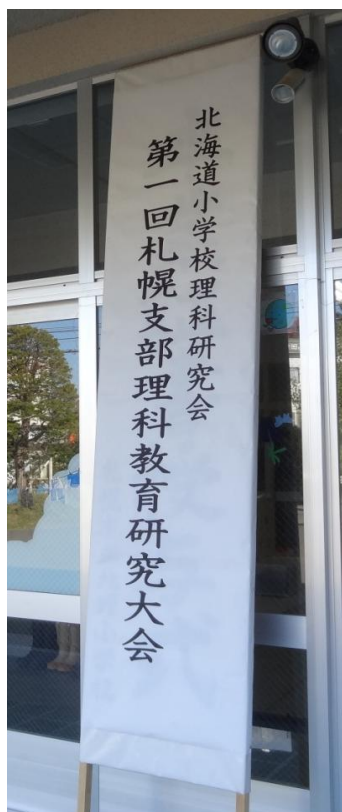 北海道小学校理科研究会
第一回札幌支部理科教育研究大会